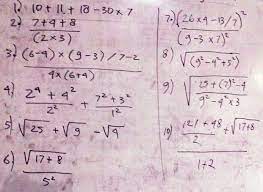 1) 10 + 11 + 18 - 30 × 7
2) 7 + 4 + 8
(2 × 3)
3) (6-4) × (9-3) / 7-2
4 × (6+4)
4) 2⁴ + 4² / 2² + 7² + 3² / 1²
5) √25 + √9 - √4
6) √17+8
5²
7) (26 × 4 - 13/7)²
(9 - 3 × 7)²
8) √(9² - 4² + 5²)
9) √25 + (7)² - 4
9² - 4² × 3
10) 121 + 48 / 2 + √17+8
1+2